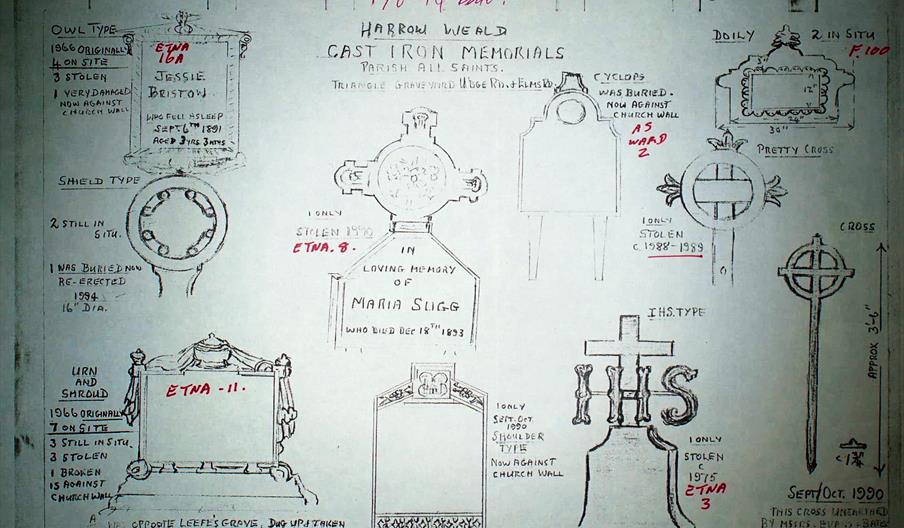 HARROW WEALD
CAST IRON MEMORIALS
PARISH ALL SAINTS.
TRIANGLE GRAVEYARD UXBGE RD. & ELMS RD
OWL TYPE
1966 ORIGINALLY
4 ON SITE
3 STOLEN
1 VERY DAMAGED
NOW AGAINST
CHURCH WALL
ETNA
16A
JESSIE
BRISTOW
WHO FELL ASLEEP
SEPT. 6TH 1891
AGED 3 YRS 3 MTHS
CYCLOPS
WAS BURIED.
NOW AGAINST
CHURCH WALL
AS
WARD
2
DOILY 2 IN SITU
F.100
3"
12"
24"
30"
PRETTY CROSS
1 ONLY
STOLEN
C. 1988-1989
SHIELD TYPE
2 STILL IN
SITU.
1 WAS BURIED NOW
RE-ERECTED
1994
16" DIA.
1 ONLY
STOLEN 1990
ETNA. 8.
IN
LOVING MEMORY
OF
MARIA SLIGG
WHO DIED DEC 18TH 1893
CROSS
APPROX 3'-6"
SEPT/OCT. 1990
THIS CROSS UNEARTHED
BY MSSRS.
URN
AND
SHROUD
1966 ORIGINALLY
7 ON SITE
3 STILL IN SITU.
3 STOLEN
1 BROKEN
IS AGAINST
CHURCH WALL
ETNA - 11.
1 ONLY
SEPT. OCT.
1990
SHOULDER
TYPE
NOW AGAINST
CHURCH WALL
I.H.S. TYPE
IHS
1 ONLY
STOLEN
C
1975
ETNA
3
OPPOSITE LEEFE'S GRAVE, DUG UP & TAKEN